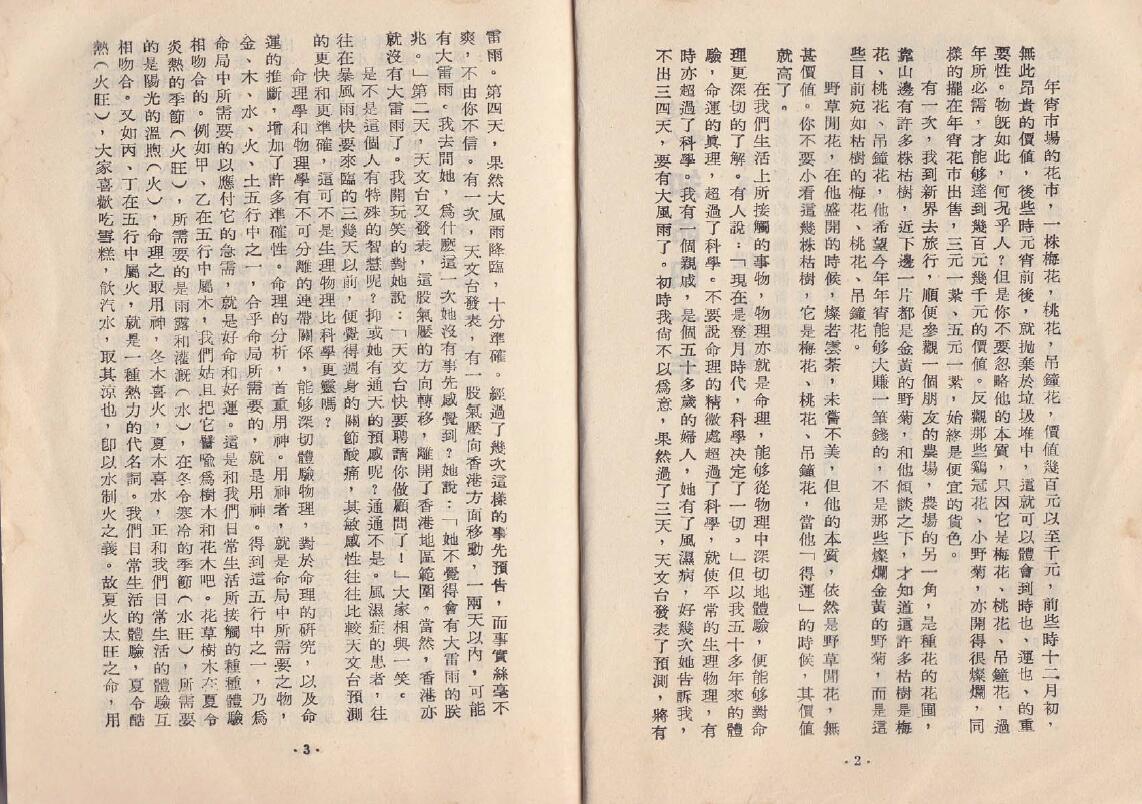 年宵市場的花市，一株梅花，桃花，吊鐘花，價值幾百元以至千元，前些時十二月初，
無此昂貴的價值，後些時元宵前後，就拋棄於垃圾堆中，這就可以體會到時也、運也、的重
要性。物旣如此，何況乎人？但是你不要忽略他的本質，只因它是梅花、桃花、吊鐘花，過
年所必需，才能够達到幾百元幾千元的價值。反觀那些鷄冠花、小野菊，亦開得很燦爛，同
樣的擺在年宵花市出售，三元一紮、五元一紮，始終是便宜的貨色。
有一次，我到新界去旅行，順便參觀一個朋友的農場，農場的另一角，是種花的花圃，
靠山邊有許多株枯樹，近下邊一片都是金黃的野菊，和他傾談之下，才知道這許多枯樹是梅
花、桃花、吊鐘花，他希望今年年宵能够大賺一筆錢的，不是那些燦爛金黃的野菊，而是這
些目前宛如枯樹的梅花、桃花、吊鐘花。
野草閒花，在他盛開的時候，燦若雲荼，未嘗不美，但他的本質，依然是野草閒花，無
甚價值。你不要小看這幾株枯樹，它是梅花、桃花、吊鐘花，當他「得運」的時候，其價值
就高了。
在我們生活上所接觸的事物，物理亦就是命理，能够從物理中深切地體驗，便能够對命
理更深切的了解。有人說：「現在是登月時代，科學决定了一切。」但以我五十多年來的體
驗，命運的眞理，超過了科學。不要說命理的精微處超過了科學，就使平常的生理物理，有
時亦超過了科學。我有一個親戚，是個五十多歲的婦人，她有了風濕病，好幾次她告訴我，
不出三四天，要有大風雨了。初時我尙不以爲意，果然過了三天，天文台發表了預測，將有
·2·
雷雨。第四天，果然大風雨降臨，十分準確。經過了幾次這樣的事先預告，而事實絲毫不
爽，不由你不信。有一次，天文台發表，有一股氣壓向香港方面移動，一兩天以內，可能
有大雷雨。我去問她，爲什麽這一次她沒有事先感覺到？她說：「她不覺得會有大雷雨的朕
兆。」第二天，天文台又發表，這股氣壓的方向轉移，離開了香港地區範圍。當然，香港亦
就沒有大雷雨了。我開玩笑的對她說：「天文台快要聘請你做顧問了！」大家相與一笑。
是不是這個人有特殊的智慧呢？抑或她有通天的預感呢？通通不是。風濕症的患者，往
往在暴風雨快要來臨的三幾天以前，便覺得週身的關節酸痛，其敏感性往往比較天文台預測
的更快和更準確，這可不是生理物理比科學更靈嗎？
命理學和物理學有不可分離的連帶關係，能够深切體驗物理，對於命理的研究，以及命
運的推斷，增加了許多準確性。命理的分析，首重用神。用神者，就是命局中所需要之物，
金、木、水、火、土五行中之一，合乎命局所需要的，就是用神。得到這五行中之一，乃爲
命局中所需要的以應付它的急需，就是好命和好運。這是和我們日常生活所接觸的種種體驗
相吻合的。例如甲、乙在五行中屬木，我們姑且把它譬喻爲樹木和花木吧。花草樹木在夏令
炎熱的季節（火旺），所需要的是雨露和灌溉（水），在冬令寒冷的季節（水旺），所需要
的是陽光的溫煦（火），命理之取用神，冬木喜火，夏木喜水，正和我們日常生活的體驗互
相吻合。又如丙、丁在五行中屬火，就是一種熱力的代名詞。我們日常生活的體驗，夏令酷
熱（火旺），大家喜歡吃雪糕，飮汽水，取其涼也，卽以水制火之義。故夏火太旺之命，用
·3·